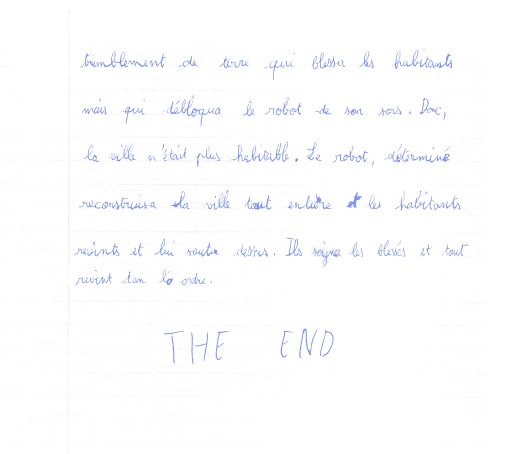 tremblement de terre qui blessa les habitants
mais qui débloqua le robot de son sors. Donc,
la ville n'était plus habitable. Le robot, déterminé
reconstruisa la ville tout entière et les habitants
revints et lui sauta dessus. Ils soigna les blessés et tout
revint dan l'o ordre.
THE END